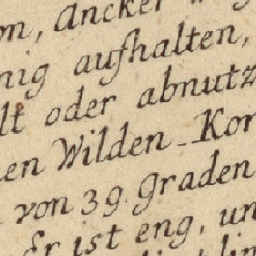 on, Ancker
nig aufhalten,
lt oder abnutz
en Wilden-Kor
von 39. Graden
Er ist eng, un